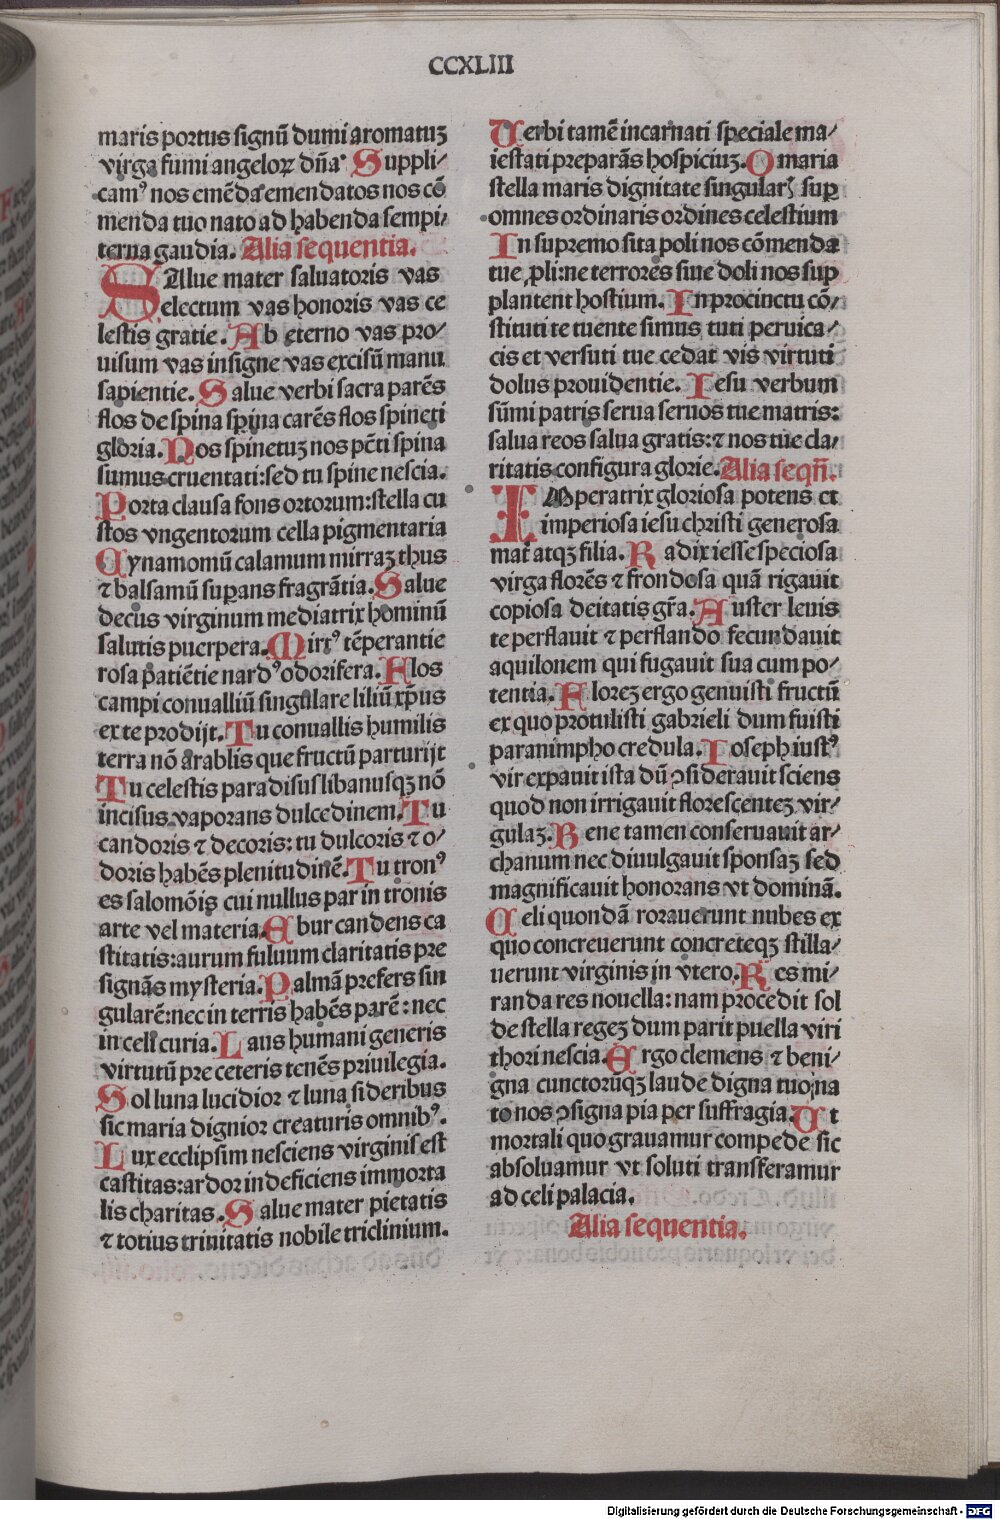 CCXLIII
maris portus signū dumi aromatuʒ
virga fumi angeloꝝ dn̄a. Suppli/
camꝰ nos emēda emendatos nos cō
menda tuo nato ad habenda sempi/
terna gaudia. Alia sequentia.
SAllue mater saluatoris vas
electum vas honoris vas ce
lestis gratie. Ab eterno vas pro/
uisum vas insigne vas excisū manu
sapientie. Salue verbi sacra parēs
flos de spina spina carēs flos spineti
gloria. Nos spinetuʒ nos pc̄ti spina
sumus cruentati: sed tu spine nescia.
Porta clausa fons ortorum: stella cu
stos vngentorum cella pigmentaria
Cynamomū calamum mirraʒ thus
⁊ balsamū suꝑans fragrātia. Salue
decus virginum mediatrix hominū
salutis puerpera. Mirtꝰ tēperantie
rosa patiētie nardꝰ odorifera. Flos
campi conualliū singulare liliū xp̄us
ex te prodijt. Tu conuallis humilis
terra nō arabilis que fructū parturijt
Tu celestis paradisus libanusqʒ nō
incisus vaporans dulcedinem. Tu
candoris ⁊ decoris: tu dulcoris ⁊ o/
doris habēs plenitudinē. Tu tronꝰ
es salomōis cui nullus par in tronis
arte vel materia. Ebur candens ca
stitatis: aurum fuluum claritatis pre
signās mysteria. Palmā prefers sin
gularē: nec in terris habēs parē: nec
in celi curia. Laus humani generis
virtutū pre ceteris tenēs priuilegia.
Sol luna lucidior ⁊ luna sideribus
sic maria dignior creaturis omnibꝰ.
Lux ecclipsim nesciens virginis est
castitas: ardor indeficiens immorta
lis charitas. Salue mater pietatis
⁊ totius trinitatis nobile triclinium.
Uerbi tamē incarnati speciale ma/
iestati preparās hospiciuʒ. O maria
stella maris dignitate singularꝭ suꝑ
omnes ordinaris ordines celestium
In supremo sita poli nos cōmenda
tue ꝓli: ne terrores siue doli nos sup
plantent hostium. In procinctu cō/
stituti te tuente simus tuti peruica/
cis et versuti tue cedat vis virtuti
dolus prouidentie. Iesu verbum
sūmi patris serua seruos tue matris:
salua reos salua gratis: ⁊ nos tue cla/
ritatis configura glorie. Alia seqn̄.
IMperatrix gloriosa potens et
imperiosa iesu christi generosa
mat̄ atqʒ filia. Radix iesse speciosa
virga florēs ⁊ frondosa quā rigauit
copiosa deitatis gr̄a. Auster lenis
te perflauit ⁊ perflando fecundauit
aquilonem qui fugauit sua cum po/
tentia. Floreʒ ergo genuisti fructū
ex quo protulisti gabrieli dum fuisti
paranimpho credula. Ioseph iustꝰ
vir expauit ista dū ↄsiderauit sciens
quod non irrigauit florescenteʒ vir/
gulaʒ. Bene tamen conseruauit ar/
chanum nec diuulgauit sponsaʒ sed
magnificauit honorans vt dominā.
Celi quondā rorauerunt nubes ex
quo concreuerunt concreteqʒ stilla/
uerunt virginis in vtero. Res mi/
randa res nouella: nam procedit sol
de stella regeʒ dum parit puella viri
thori nescia. Ergo clemens ⁊ beni/
gna cunctorūqʒ laude digna tuo na
to nos ↄsigna pia per suffragia. Ut
mortali quo grauamur compede sic
absoluamur vt soluti transferamur
ad celi palacia.
Alia sequentia.
Digitalisierung gefördert durch die Deutsche Forschungsgemeinschaft - DFG